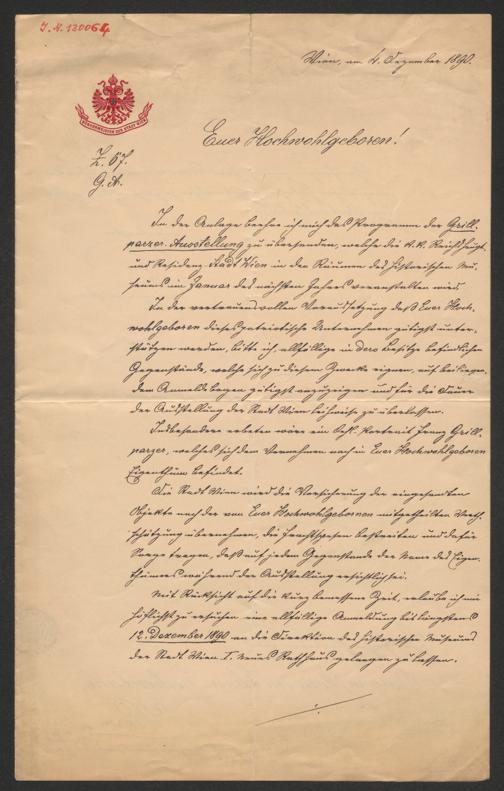 I.N. 120064
Wien, am 4. Dezember 1890.
BÜRGERMEISTER DER STADT WIEN
Z. 67.
G. A.
Euer Hochwohlgeboren!
In der Anlage beehre ich mich das Programm der Grill-
parzer-Ausstellung zu übersenden, welche die k. k. Reichshaupt-
und Residenz-Stadt Wien in den Räumen des historischen Mu-
seums im Januar des nächsten Jahres veranstalten wird.
In der vertrauensvollen Voraussetzung daß Euer Hoch-
wohlgeboren dieses patriotische Unternehmen gütigst unter-
stützen werden, bitte ich, allfällige in dero Besitze befindlichen
Gegenstände, welche sich zu diesem Zwecke eignen, auf beiliegen-
dem Anmeldebogen gütigst anzuzeigen und für die Dauer
der Ausstellung der Stadt Wien leihweise zu überlassen.
Insbesondere erbeten wäre ein Portrait Franz Grill-
parzer, welches sich dem Vernehmen nach in Euer Hochwohlgeboren
Eigenthum befindet.
Die Stadt Wien wird die Versicherung der eingesandten
Objekte nach der von Euer Hochwohlgebornen mitgetheilten Werth-
schätzung übernehmen, die Frachtspesen bestreiten und dafür
Sorge tragen, daß auf jedem Gegenstande der Name des Eigen-
thümers während der Ausstellung ersichtlich sei.
Mit Rücksicht auf die kurz bemessene Zeit, erlaube ich mir
höflichst zu ersuchen eine allfällige Anmeldung bis längstens
12. Dezember 1890 an die Direktion des historischen Museums
der Stadt Wien I. Neues Rathhaus gelangen zu lassen.